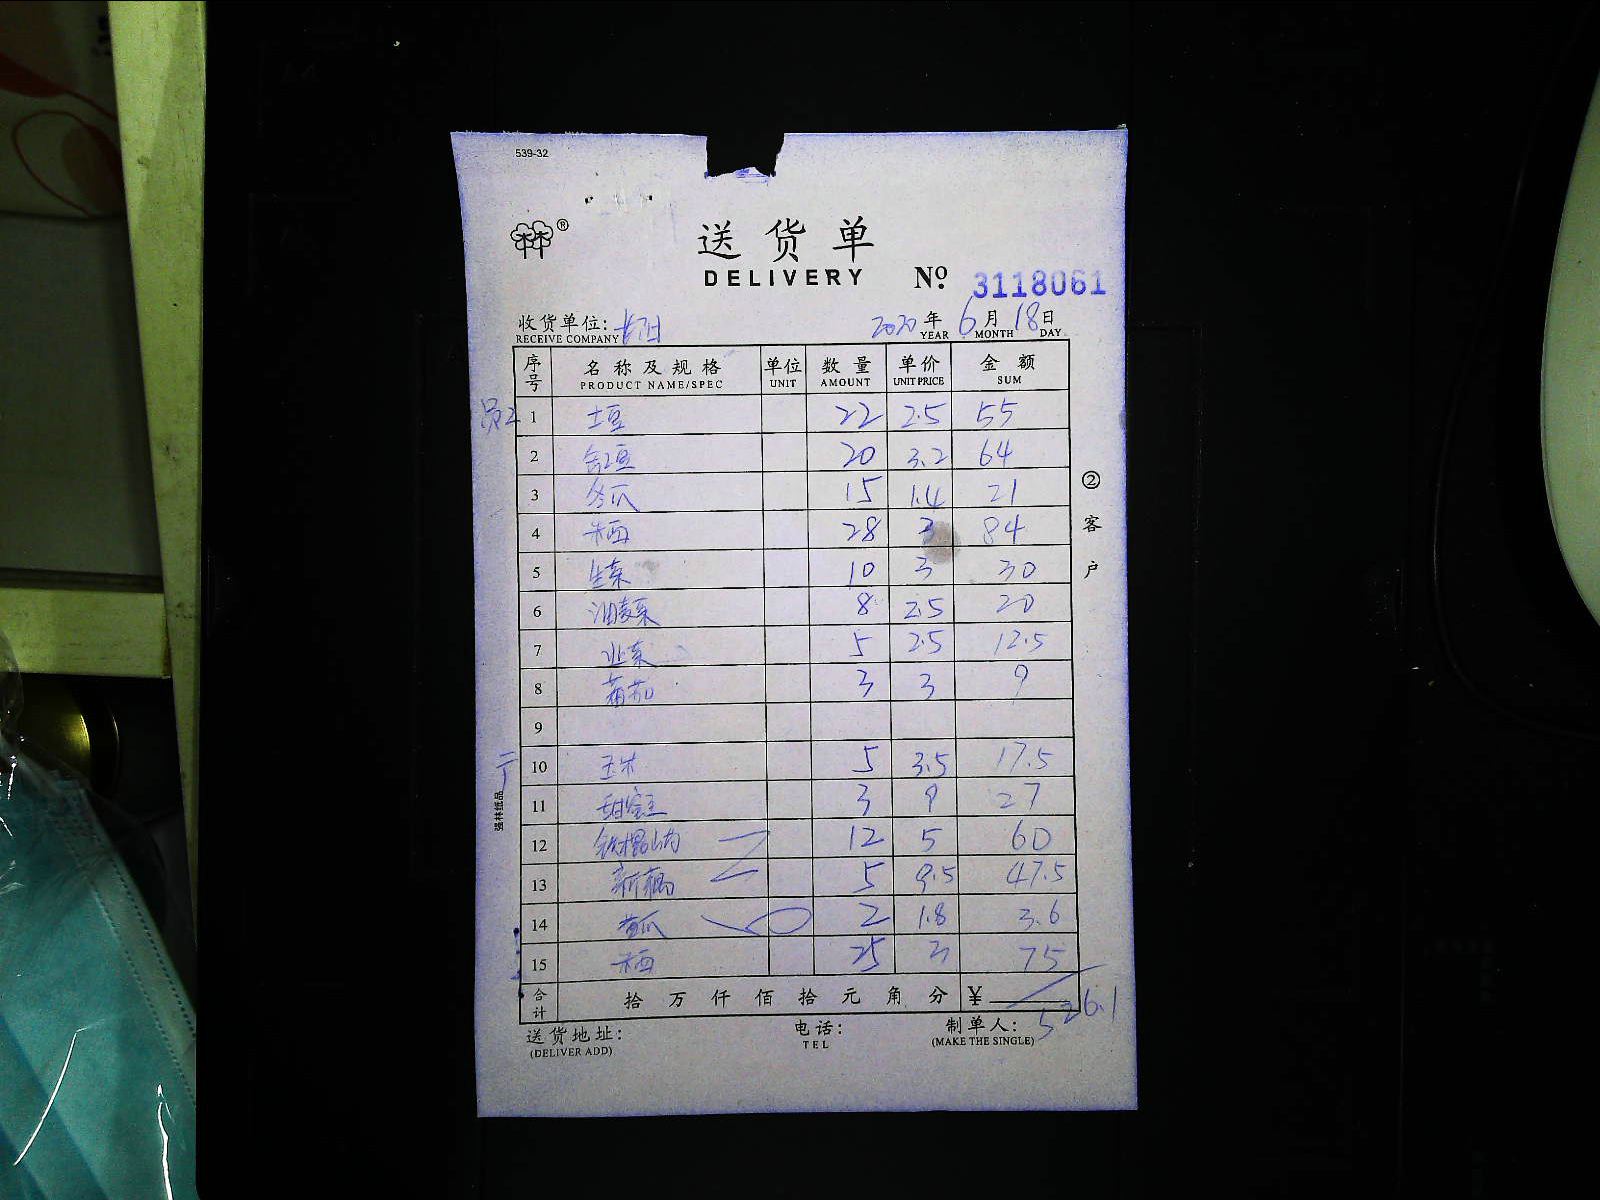 539-32
®
送货单
DELIVERY No. 3118061
收货单位: 2020 年 6 月 18 日
RECEIVE COMPANY YEAR MONTH DAY
序号 名称及规格 单位 数量 单价 金额
PRODUCT NAME/SPEC UNIT AMOUNT UNIT PRICE SUM
员工 1 土豆 22 2.5 55
2 豆 20 3.2 64
3 冬瓜 15 1.4 21
4 28 3 84
5 生菜 10 3 30
6 油麦菜 8 2.5 20
7 菜 5 2.5 12.5
8 蕃茄 3 3 9
9
10 玉米 5 3.5 17.5
11 甜蜜豆 3 9 27
12 铁棍山药 12 5 60
13 新藕 5 9.5 47.5
14 黄瓜 2 1.8 3.6
15 25 3 75
合计 拾万仟佰拾元角分 ¥ 526.1
送货地址: 电话: 制单人:
(DELIVER ADD) TEL (MAKE THE SINGLE)
②客户
强林纸品